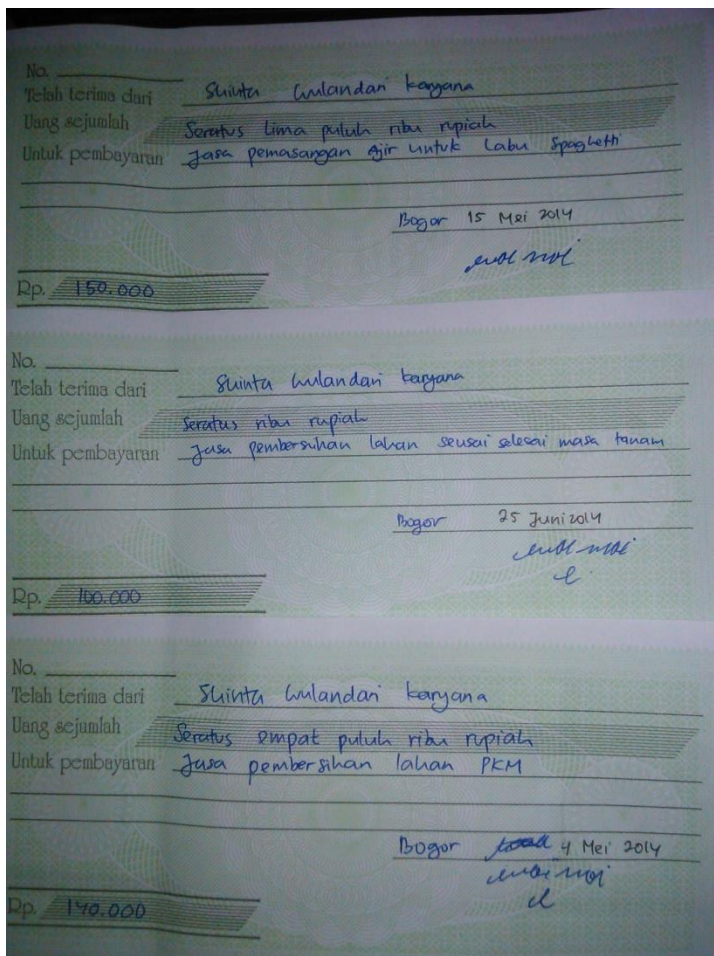 No.
Telah terima dari Shinta Wulandari Karyana
Uang sejumlah Seratus Lima puluh ribu rupiah
Untuk pembayaran Jasa pemasangan Ajir untuk Labu Spaghetti
Bogor 15 Mei 2014
Rp. 150.000
No.
Telah terima dari Shinta Wulandari Karyana
Uang sejumlah Seratus ribu rupiah
Untuk pembayaran Jasa pembersihan lahan seusai selesai masa tanam
Bogor 25 Juni 2014
Rp. 100.000
No.
Telah terima dari Shinta Wulandari Karyana
Uang sejumlah Seratus empat puluh ribu rupiah
Untuk pembayaran Jasa pembersihan lahan PKM
Bogor 4 Mei 2014
Rp. 140.000